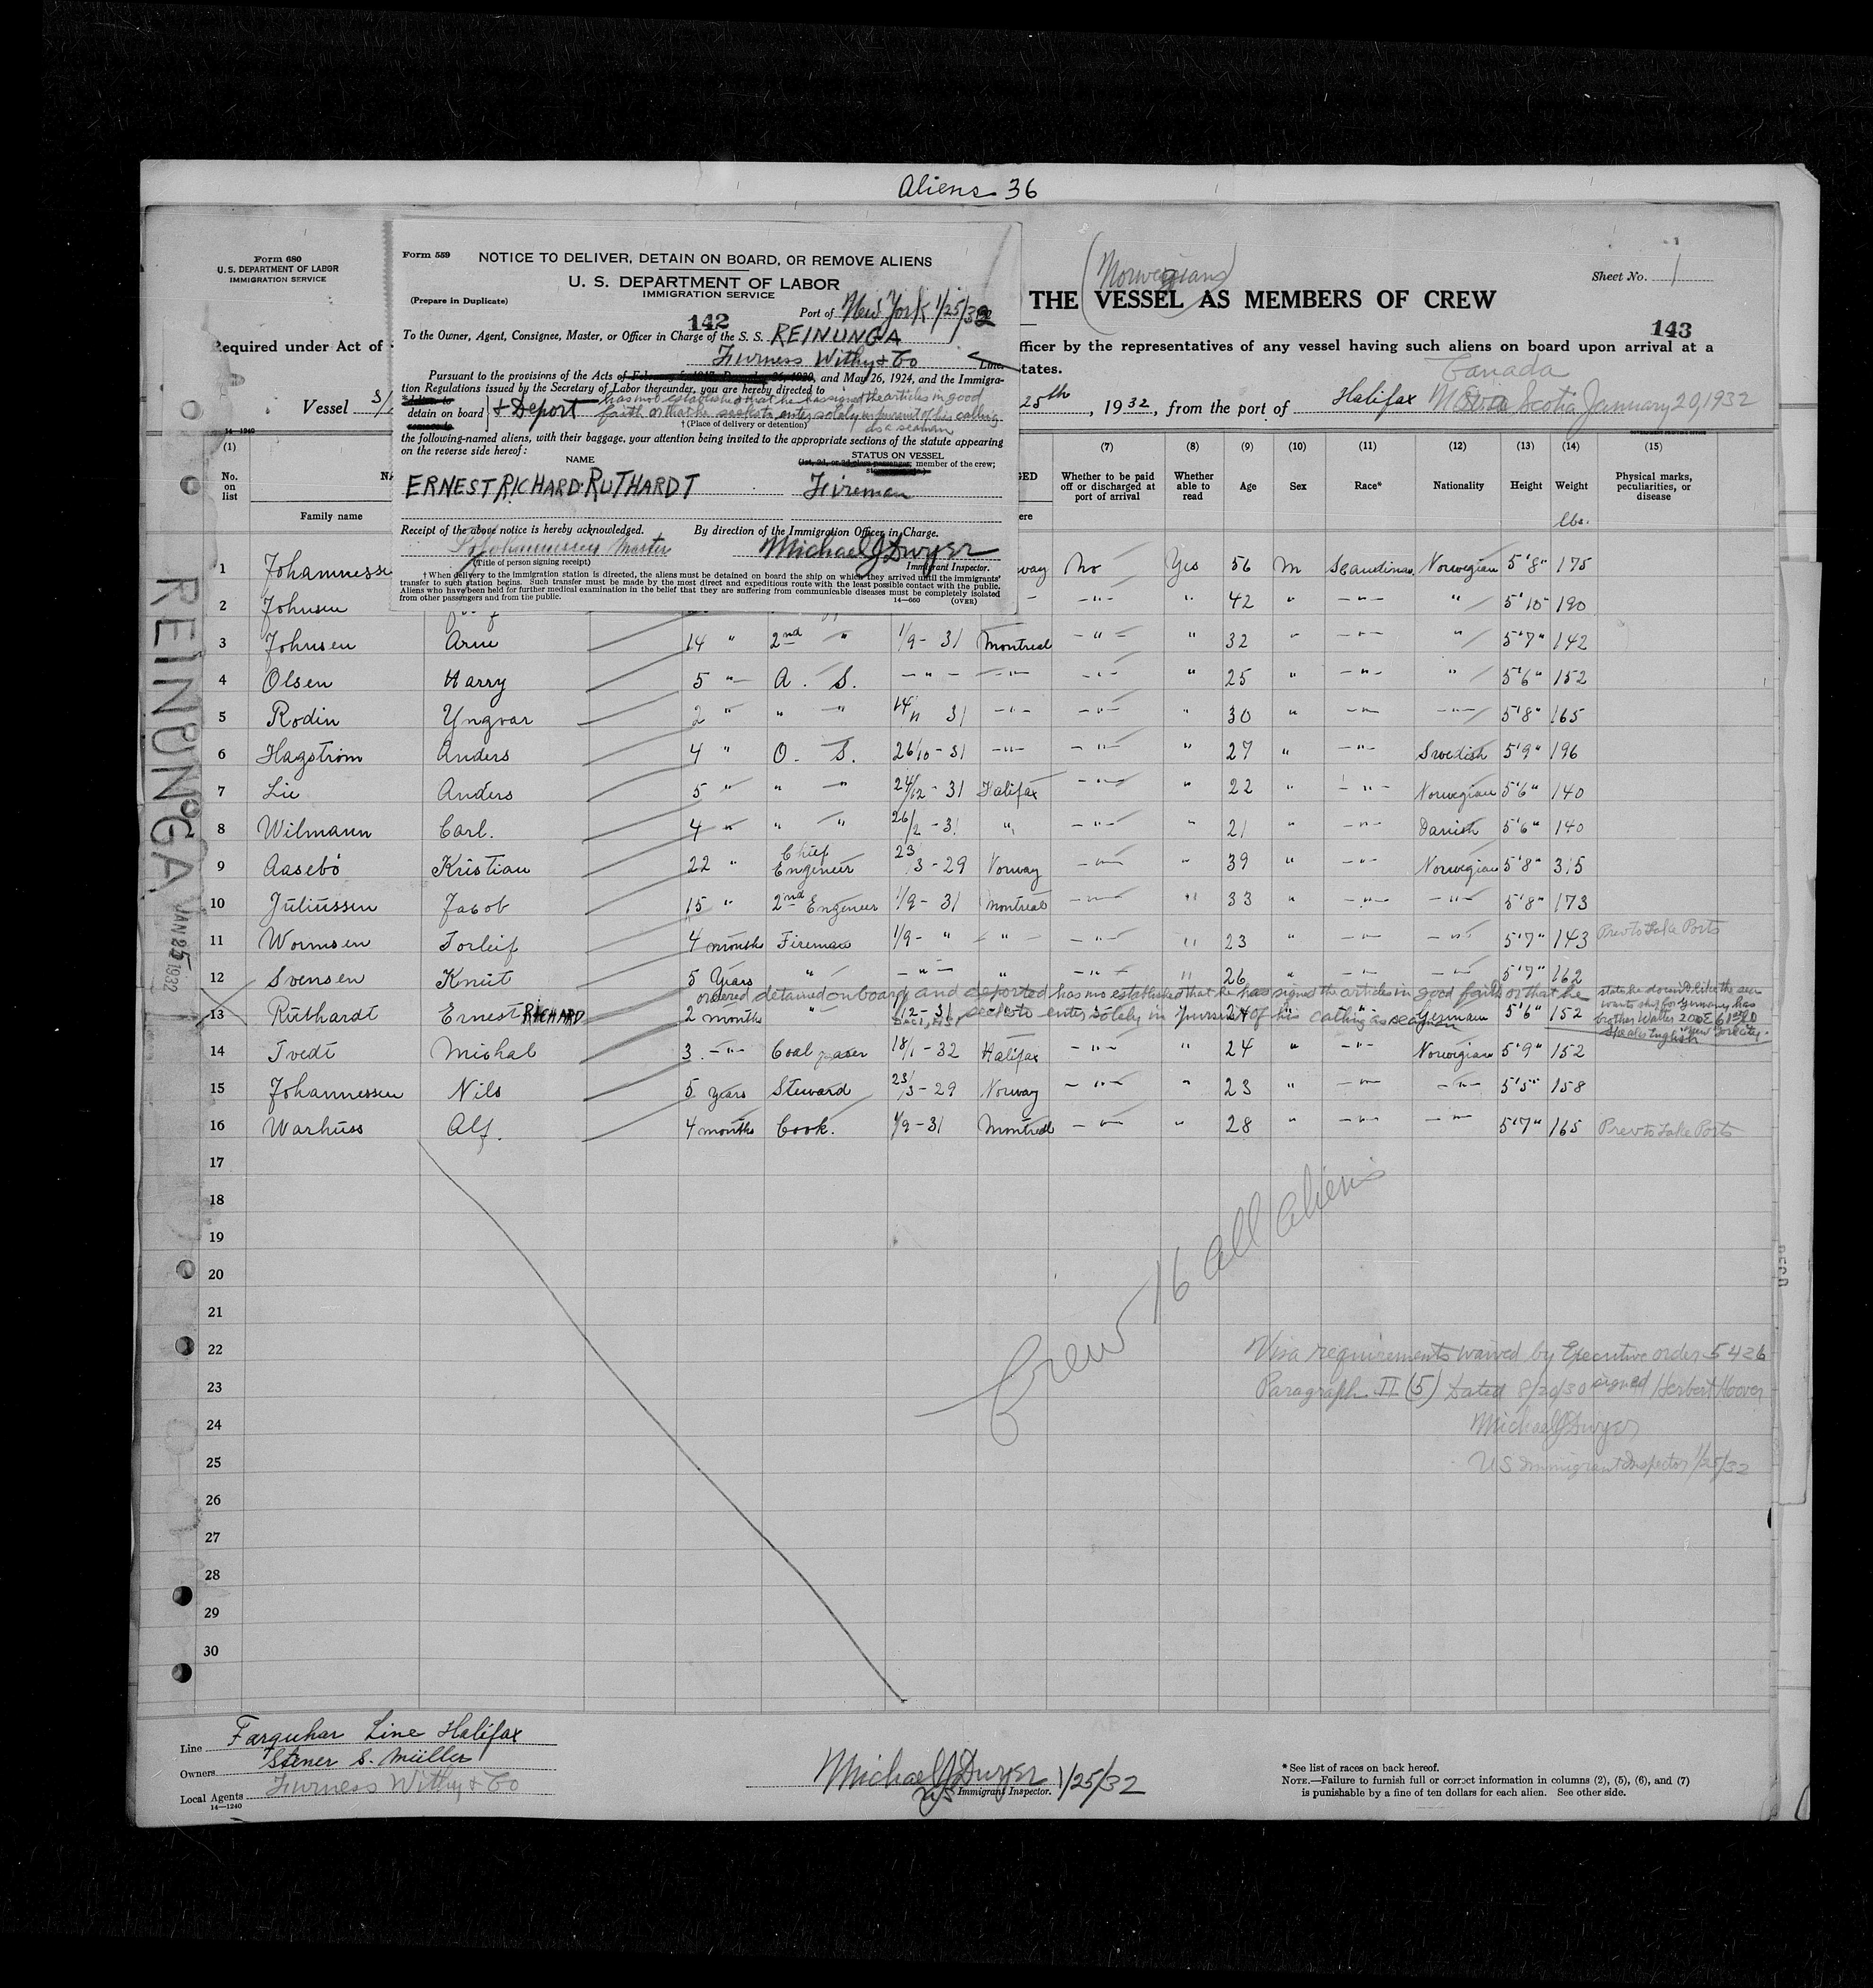 Aliens 36
Form 680
U. S. DEPARTMENT OF LABOR
IMMIGRATION SERVICE
Required under Act of
Vessel S/
14—1240
Form 559
NOTICE TO DELIVER, DETAIN ON BOARD, OR REMOVE ALIENS
U. S. DEPARTMENT OF LABOR
IMMIGRATION SERVICE
(Prepare in Duplicate)
142
Port of New York 1/25/32
To the Owner, Agent, Consignee, Master, or Officer in Charge of the S. S. REINUNGA
Furness Withy & Co Line.
Pursuant to the provisions of the Acts of February 5, 1917, December 26, 1920, and May 26, 1924, and the Immigra-
tion Regulations issued by the Secretary of Labor thereunder, you are hereby directed to
detain on board } & Deport has not established that he has signed the articles in good
faith or that he seeks to enter solely in pursuit of his calling
as a seaman
† (Place of delivery or detention)
the following-named aliens, with their baggage, your attention being invited to the appropriate sections of the statute appearing
on the reverse side hereof:
NAME
STATUS ON VESSEL
(1st, 2d, or 3d class passenger; member of the crew;
ERNEST RICHARD RUTHARDT Fireman
Receipt of the above notice is hereby acknowledged. By direction of the Immigration Officer in Charge.
Johannessen Master Michael J Dwyer
(Title of person signing receipt) Immigrant Inspector.
† When delivery to the immigration station is directed, the aliens must be detained on board the ship on which they arrived until the immigrants'
transfer to such station begins. Such transfer must be made by the most direct and expeditious route with the least possible contact with the public.
Aliens who have been held for further medical examination in the belief that they are suffering from communicable diseases must be completely isolated
from other passengers and from the public. 14—660 (OVER)
(Norwegians)
Sheet No. 1
THE VESSEL AS MEMBERS OF CREW
143
officer by the representatives of any vessel having such aliens on board upon arrival at a
tates.
Canada
25th, 1932, from the port of Halifax Nova Scotia January 20, 1932
(1) (7) (8) (9) (10) (11) (12) (13) (14) (15)
No. on list
Family name
GED
ere
Whether to be paid off or discharged at port of arrival
Whether able to read
Age
Sex
Race*
Nationality
Height
Weight
lbs.
Physical marks, peculiarities, or disease
1 Johannesse way No Yes 56 M Scandinav. Norwegian 5'8" 175
2 Johnsen - " - " 42 " - " - " 5'10" 190
3 Johnsen Arne 14 " 2nd " 1/9 - 31 Montreal - " - " 32 " - " - " 5'7" 142
4 Olsen Harry 5 " A. S. - " - - " - - " - " 25 " - " - " 5'6" 152
5 Rodin Yngvar 2 " " " 14/11 31 - " - - " - " 30 " - " - - " - 5'8" 165
6 Hagstrom Anders 4 " O. S. 26/10 - 31 - " - - " - " 27 " - " - Swedish 5'9" 196
7 Lie Anders 5 " " " 24/12 - 31 Halifax - " - " 22 " - " - Norwegian 5'6" 140
8 Wilmann Carl. 4 " " " 26/2 - 31 " - " - " 21 " - " - Danish 5'6" 140
9 Aasebö Kristian 22 " Chief Engeneer 23/3 - 29 Norway - " - " 39 " - " - Norwegian 5'8" 315
10 Juliussen Jacob 15 " 2nd Engeneer 1/9 - 31 Montreal - " - " 33 " - " - - " - 5'8" 173
11 Wormsen Torleif 4 months Fireman 1/9 - " - " - - " - " 23 " - " - - " - 5'7" 143 Prev to Lake Ports
12 Svensen Knut 5 Years " - " - " - " - " 26 " - " - - " - 5'7" 162
ordered detained on board and deported has not established that he has signed the articles in good faith or that he
seeks to enter solely in pursuit of his calling as seaman
13 Ruthardt Ernest RICHARD 2 months " 1/12 - 31 Dec 1, 1931 24 " German 5'6" 152
states he doesn't like the sea
wants ship for Germany has
brother Walter 200 E 61st
Speaks English New York City
14 Tvedt Michal 3. - " - Coal passer 18/1 - 32 Halifax - " - " 24 " - " - Norwegian 5'9" 152
15 Johannessen Nils 5 years Steward 23/3 - 29 Norway - " - " 23 " - " - - " - 5'5" 158
16 Warhuss Alf. 4 months Cook. 1/9 - 31 Montreal - " - " 28 " - " - - " - 5'7" 165 Prev to Lake Ports
17
18
19
20
21
22
23
24
25
26
27
28
29
30
REINUNGA
JAN 25 1932
Crew 16 all aliens
Visa requirements waived by Executive order 5426
Paragraph II (5) Dated 8/20/30 signed Herbert Hoover
Michael J Dwyer
US Immigrant Inspector 1/25/32
Line Farquhar Line Halifax
Owners Stener S. Müller
Local Agents Furness Withy & Co
14—1240
Michael J Dwyer 1/25/32
US Immigrant Inspector.
* See list of races on back hereof.
NOTE.—Failure to furnish full or correct information in columns (2), (5), (6), and (7)
is punishable by a fine of ten dollars for each alien. See other side.